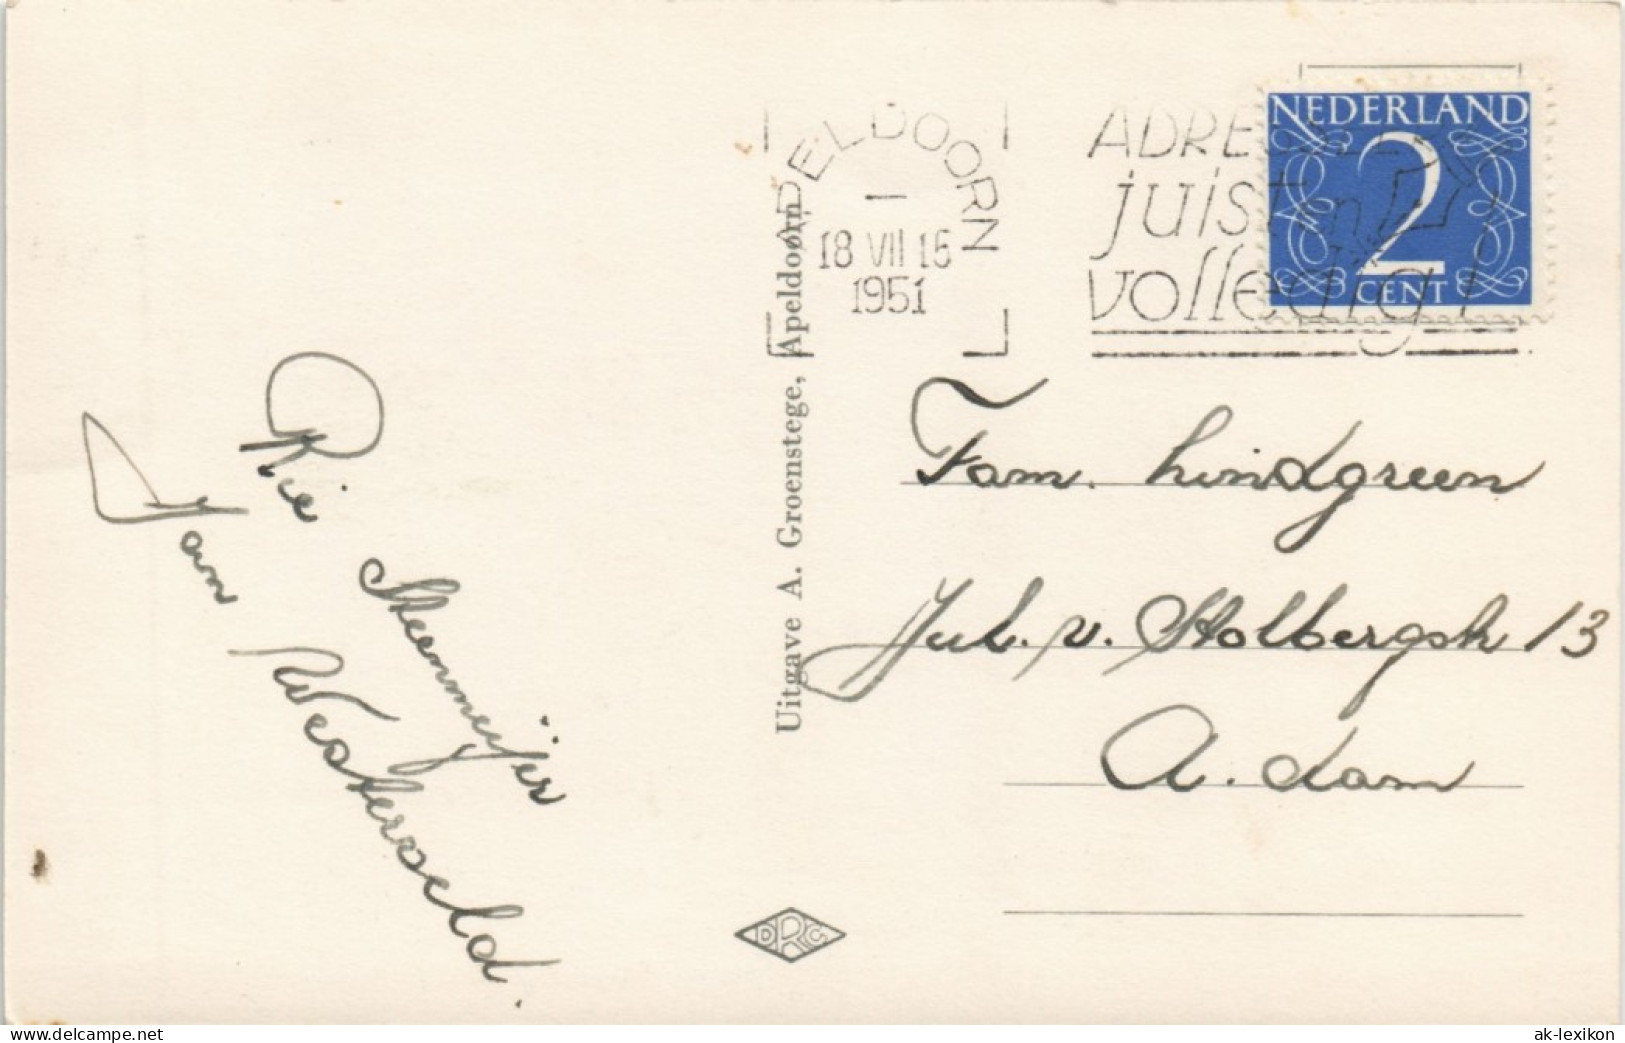 NEDERLAND
2
CENT
APELDOORN
18 VII 15
1951
ADRES
juist en
volledig!
Fam. Lindgreen
Jul. v. Stolbergstr 13
A. dam
Rie Steenmeijer
Jan Westerveld.
Uitgave A. Groenstege, Apeldoorn
DRC
delcampe.net
marmic
ak-lexikon